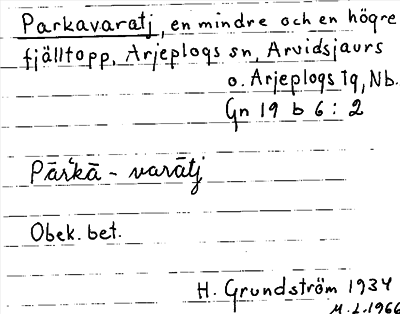 Parkavaratj, en mindre och en högre
fjälltopp, Arjeplogs sn, Arvidsjaurs
o. Arjeplogs tg, Nb.
Gn 19 b 6 : 2
Pārkā - varātj
Obek. bet.
H. Grundström 1934
M.L. 1966